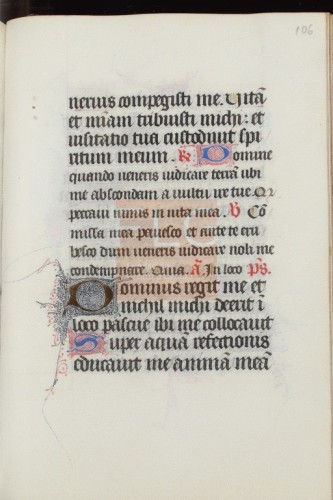 106
neruis compegisti me. Uitā
et mi͞am tribuisti michi: et
uisitatio tua custodiuit spi
ritum meum. R̸ Domine
quando ueneris iudicare terrā ubi
me abscondam a uultu ire tue Qr
peccaui nimis in uita mea. V̸ Cō
missa mea pauesco et ante te eru
besco dum ueneris iudicare noli me
condempnare. Quia. A̅. In loco p̅s.
Dominus regit me et
nichil michi deerit ī
loco pascue ibi me collocauit
Super aquā refectionis
educauit me animā meā